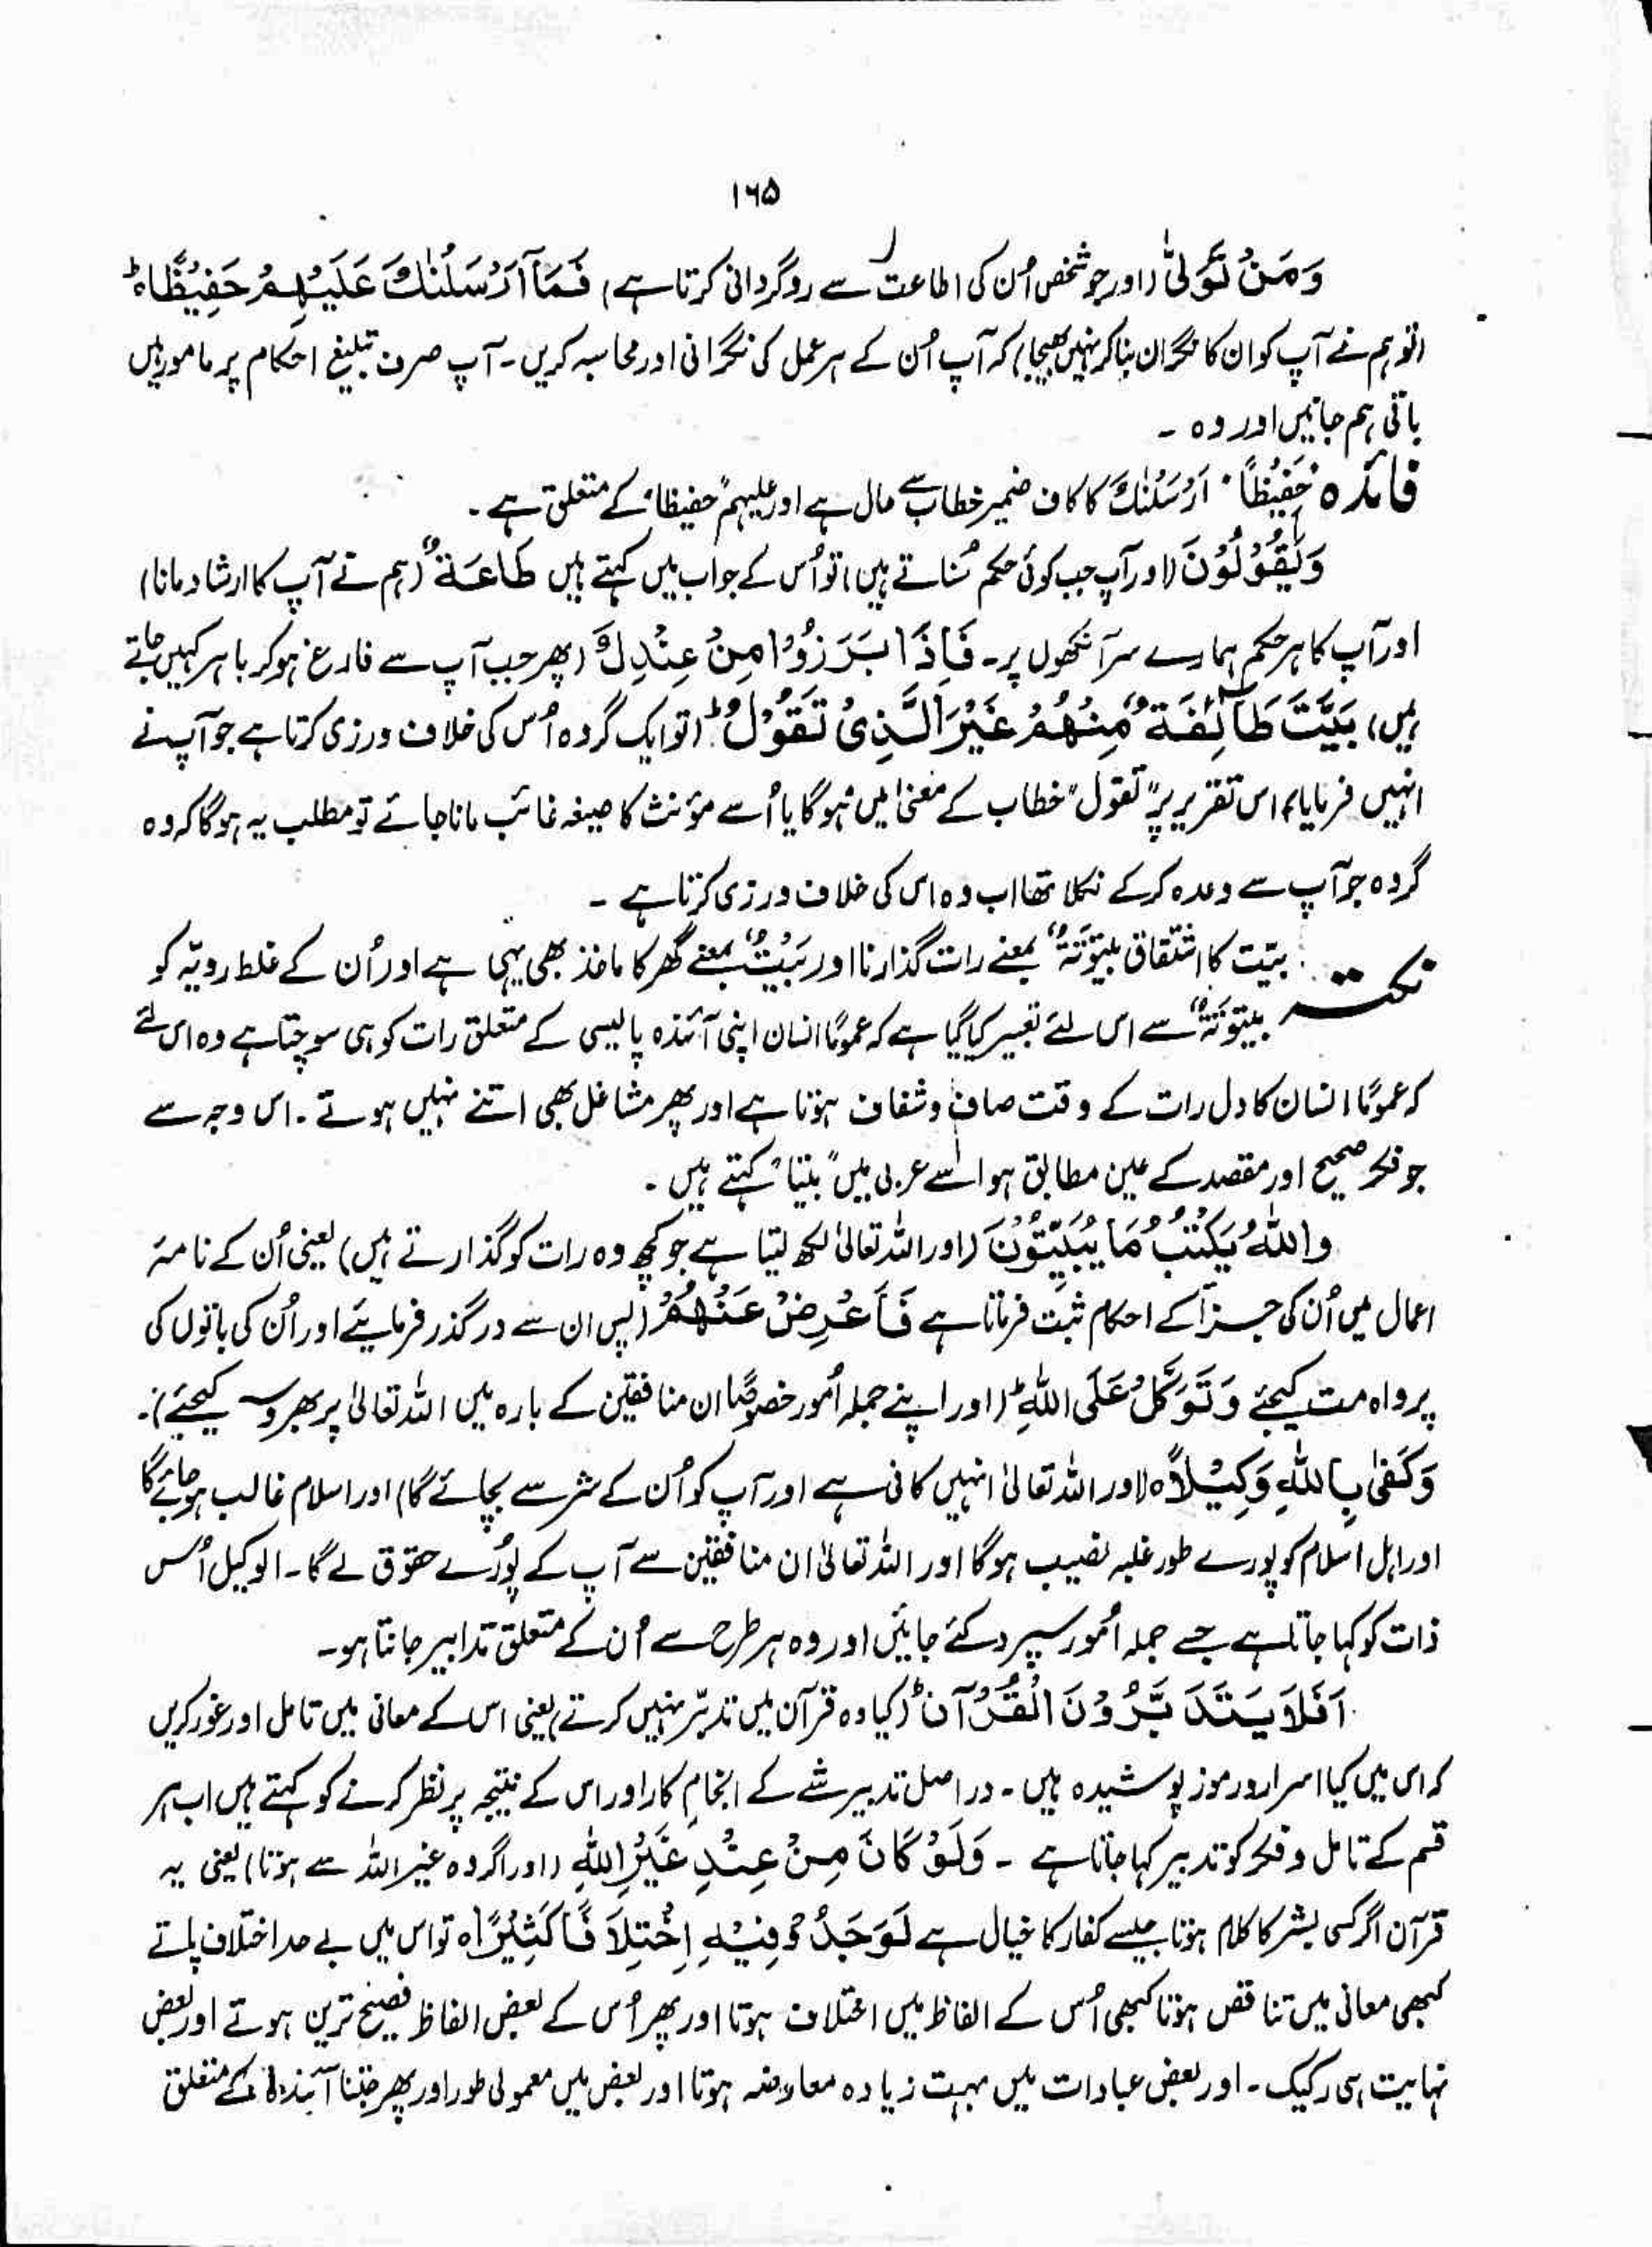 ۱۶۵
وَمَنْ تَوَلّٰی (اور جو شخص اُن کی اطاعت سے روگردانی کرتا ہے) فَمَآ اَرْسَلْنٰكَ عَلَیْهِمْ حَفِیْظًا ہ ؕ
(تو ہم نے آپ کو ان کا نگران بنا کر نہیں بھیجا) کہ آپ اُن کے ہر عمل کی نگرانی اور محاسبہ کریں۔ آپ صرف تبلیغ احکام پر مامور ہیں
باقی ہم جانیں اور وہ ۔
فائدہ حَفِیْظًا ٬ اَرْسَلْنٰكَ کا کاف ضمیر خطاب سے حال ہے اور علیہم ”حفیظا“ کے متعلق ہے ۔
وَیَقُوْلُوْنَ (اور آپ جب کوئی حکم سُناتے ہیں) تو اُس کے جواب میں کہتے ہیں طَاعَةٌ (ہم نے آپ کا ارشاد مانا)
اور آپ کا ہر حکم ہمارے سر آنکھوں پر۔ فَاِذَا بَرَزُوْا مِنْ عِنْدِكَ (پھر جب آپ سے فارغ ہو کر باہر کہیں جاتے
ہیں) بَیَّتَ طَآئِفَةٌ مِّنْهُمْ غَیْرَ الَّذِیْ تَقُوْلُ ؕ (تو ایک گروہ اُس کی خلاف ورزی کرتا ہے جو آپ نے
انہیں فرمایا) اس تقریر پر ”تقول“ خطاب کے معنیٰ میں ہوگا یا اُسے مؤنث کا صیغہ غائب مانا جائے تو مطلب یہ ہوگا کہ وہ
گروہ جو آپ سے وعدہ کرکے نکلا تھا اب وہ اس کی خلاف ورزی کرتا ہے ۔
نکتہ : بیّت کا اشتقاق بَیْتُوْتَةٌ بمعنے رات گذارنا اور بَیْتٌ بمعنے گھر کا ماخذ بھی یہی ہے اور اُن کے غلط رویّہ کو
بیتوتةٌ سے اس لئے تعبیر کیا گیا ہے کہ عمومًا انسان اپنی آئندہ پالیسی کے متعلق رات کو ہی سوچتا ہے وہ اس لئے
کہ عمومًا انسان کا دل رات کے وقت صاف و شفاف ہوتا ہے اور پھر مشاغل بھی اتنے نہیں ہوتے ۔ اس وجہ سے
جو فکر صحیح اور مقصد کے عین مطابق ہو اُسے عربی میں ”بیتا“ کہتے ہیں ۔
وَاللهُ یَكْتُبُ مَا یُبَیِّتُوْنَ (اور اللہ تعالیٰ لکھ لیتا ہے جو کچھ وہ رات کو گذارتے ہیں) یعنی اُن کے نامۂ
اعمال میں اُن کی جزا کے احکام ثبت فرماتا ہے فَاَعْرِضْ عَنْهُمْ (پس ان سے درگذر فرمایئے اور اُن کی باتوں کی
پرواہ مت کیجئے وَتَوَكَّلْ عَلَی اللهِ ؕ (اور اپنے جملہ اُمور خصوصًا ان منافقین کے بارہ میں اللہ تعالیٰ پر بھروسہ کیجیئے)۔
وَكَفٰی بِاللهِ وَكِیْلًا ہ (اور اللہ تعالیٰ انہیں کافی ہے اور آپ کو اُن کے شر سے بچائے گا) اور اسلام غالب ہوجائے گا
اور اہل اسلام کو پورے طور غلبہ نصیب ہوگا اور اللہ تعالیٰ ان منافقین سے آپ کے پُورے حقوق لے گا۔ الوکیل اُس
ذات کو کہا جاتا ہے جسے جملہ اُمور سپرد کئے جائیں اور وہ ہر طرح سے اُن کے متعلق تدابیر جانتا ہو۔
اَفَلَا یَتَدَبَّرُوْنَ الْقُرْآنَ ؕ (کیا وہ قرآن میں تدبّر نہیں کرتے) یعنی اس کے معانی میں تامل اور غور کریں
کہ اس میں کیا اسرار و رموز پوشیدہ ہیں ۔ دراصل تدبیر شے کے انجامِ کار اور اس کے نتیجہ پر نظر کرنے کو کہتے ہیں اب ہر
قسم کے تامل و فکر کو تدبیر کہا جاتا ہے ۔ وَلَوْ كَانَ مِنْ عِنْدِ غَیْرِ اللهِ (اور اگر وہ غیر اللہ سے ہوتا) یعنی یہ
قرآن اگر کسی بشر کا کلام ہوتا جیسے کفار کا خیال ہے لَوَجَدُوْا فِیْهِ اِخْتِلَافًا كَثِیْرًا ہ تو اس میں بے حد اختلاف پاتے
کبھی معانی میں تناقض ہوتا کبھی اُس کے الفاظ میں اختلاف ہوتا اور پھر اُس کے بعض الفاظ فصیح ترین ہوتے اور بعض
نہایت ہی رکیک ۔ اور بعض عبادات میں بہت زیادہ معارضہ ہوتا اور بعض میں معمولی طور اور پھر جتنا آئندہ کے متعلق